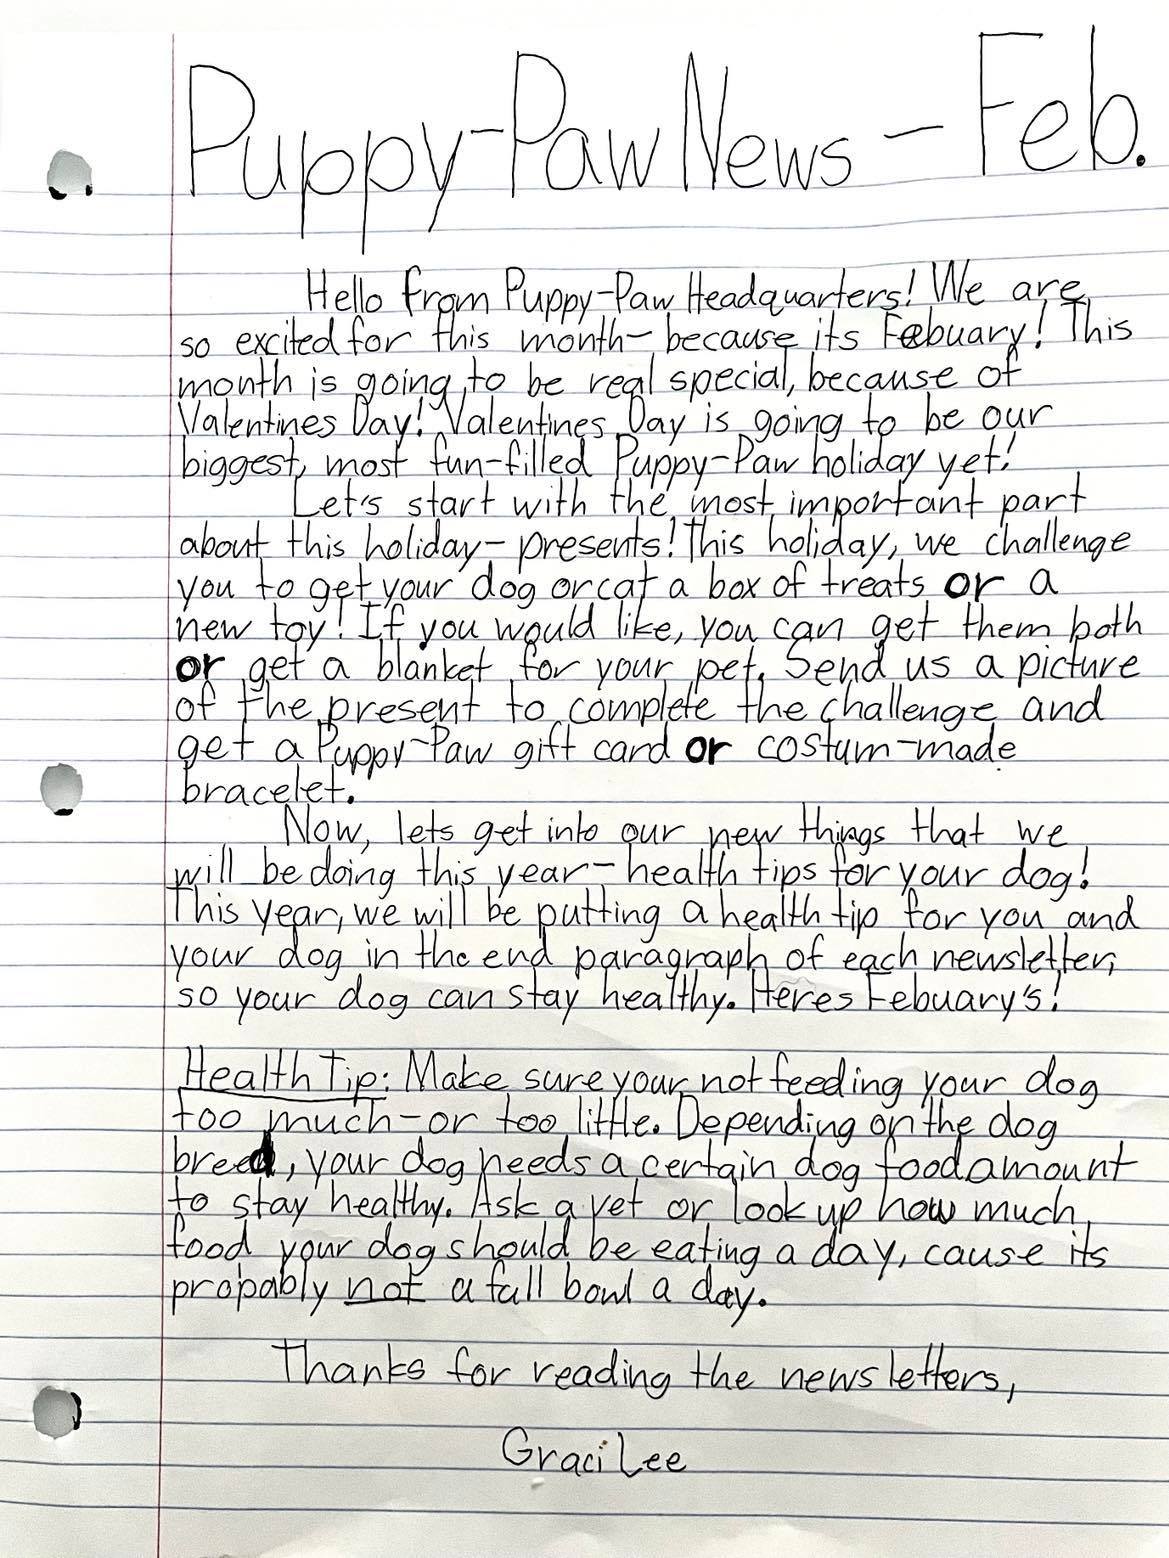 Puppy-Paw News - Feb.
Hello from Puppy-Paw Headquarters! We are
so excited for this month- because its Febuary! This
month is going to be real special, because of
Valentines Day! Valentines Day is going to be our
biggest, most fun-filled Puppy-Paw holiday yet!
Let's start with the most important part
about this holiday- presents! This holiday, we challenge
you to get your dog or cat a box of treats or a
new toy! If you would like, you can get them both
or get a blanket for your pet. Send us a picture
of the present to complete the challenge and
get a Puppy-Paw gift card or costum-made
bracelet.
Now, lets get into our new things that we
will be doing this year- health tips for your dog!
This year, we will be putting a health tip for you and
your dog in the end paragraph of each newsletter,
so your dog can stay healthy. Heres Febuary's!
Health Tip: Make sure your not feeding your dog
too much-or too little. Depending on the dog
breed, your dog needs a certain dog food amount
to stay healthy. Ask a vet or look up how much
food your dog should be eating a day, cause its
propably not a full bowl a day.
Thanks for reading the newsletters,
Graci Lee